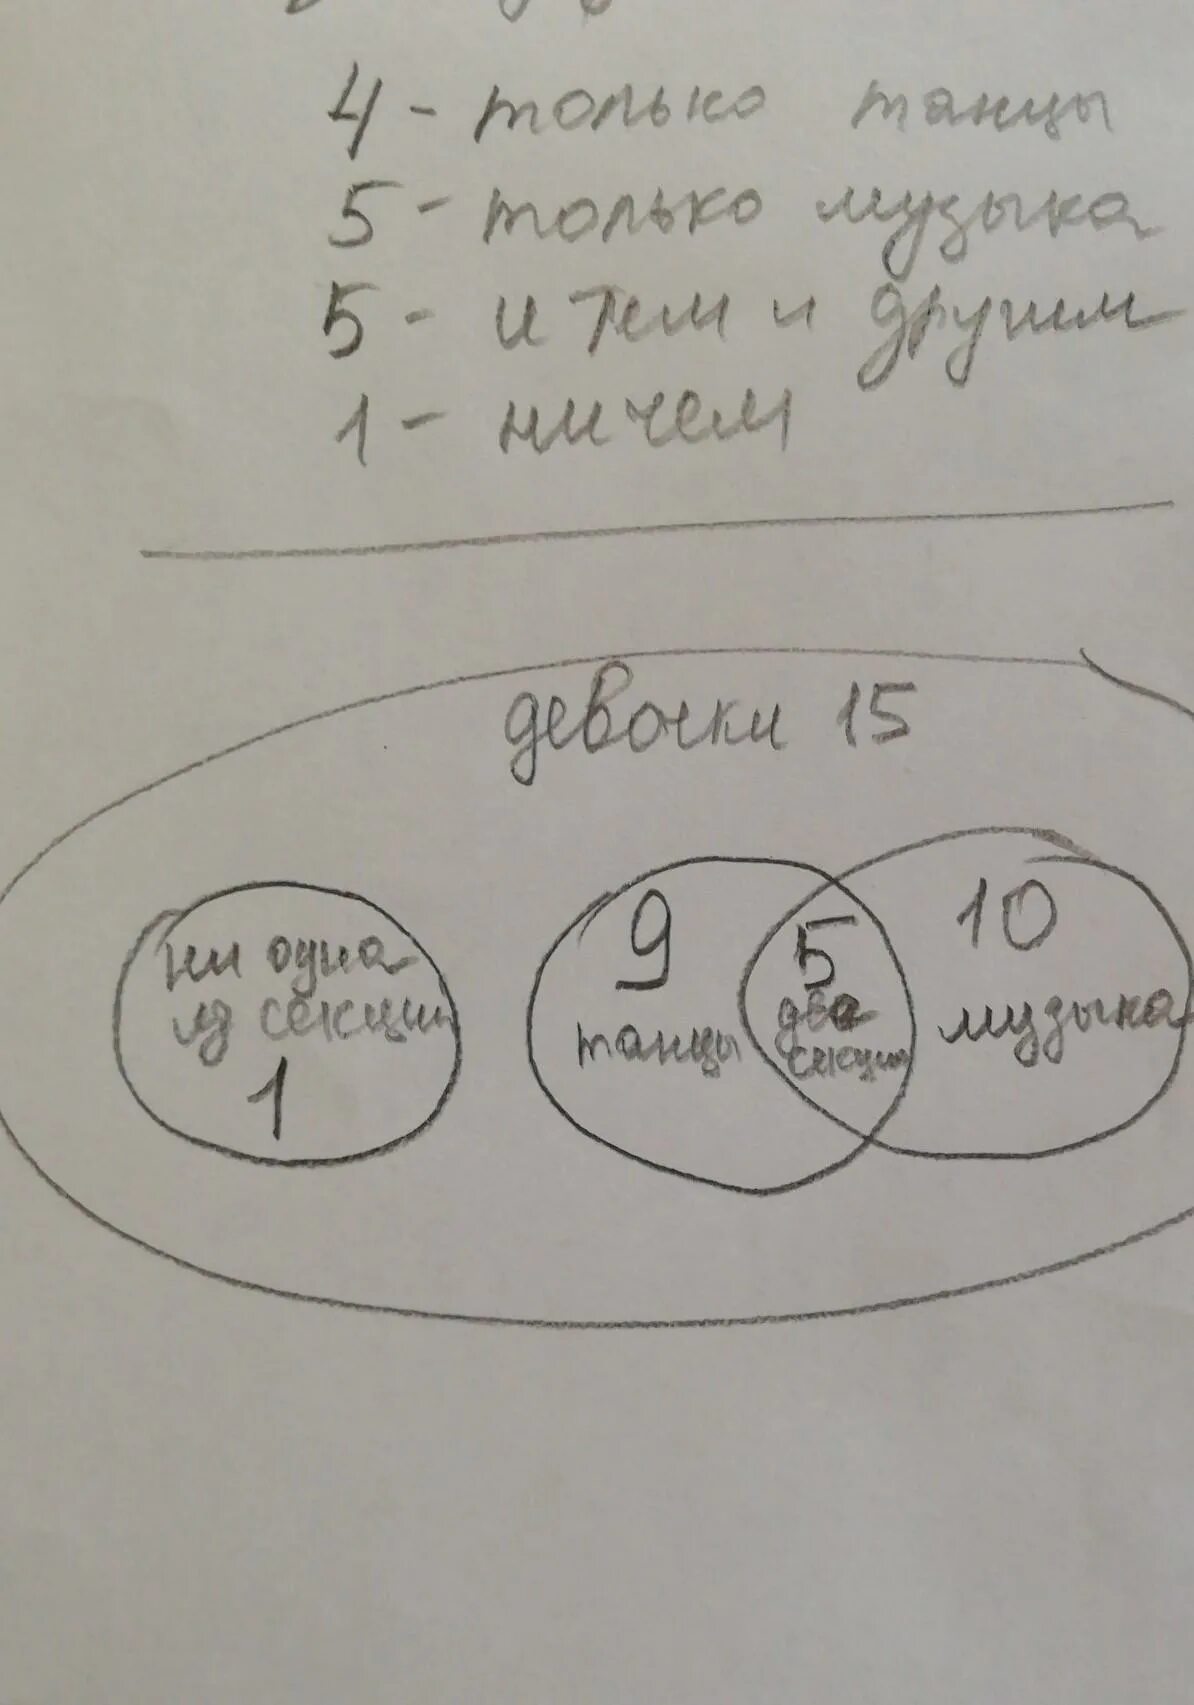 4 - только танцы
5 - только музыка
5 - и тем и другим
1 - ничем
девочки 15
ни одна
из секций
1
9
танцы
5
два
секции
10
музыка